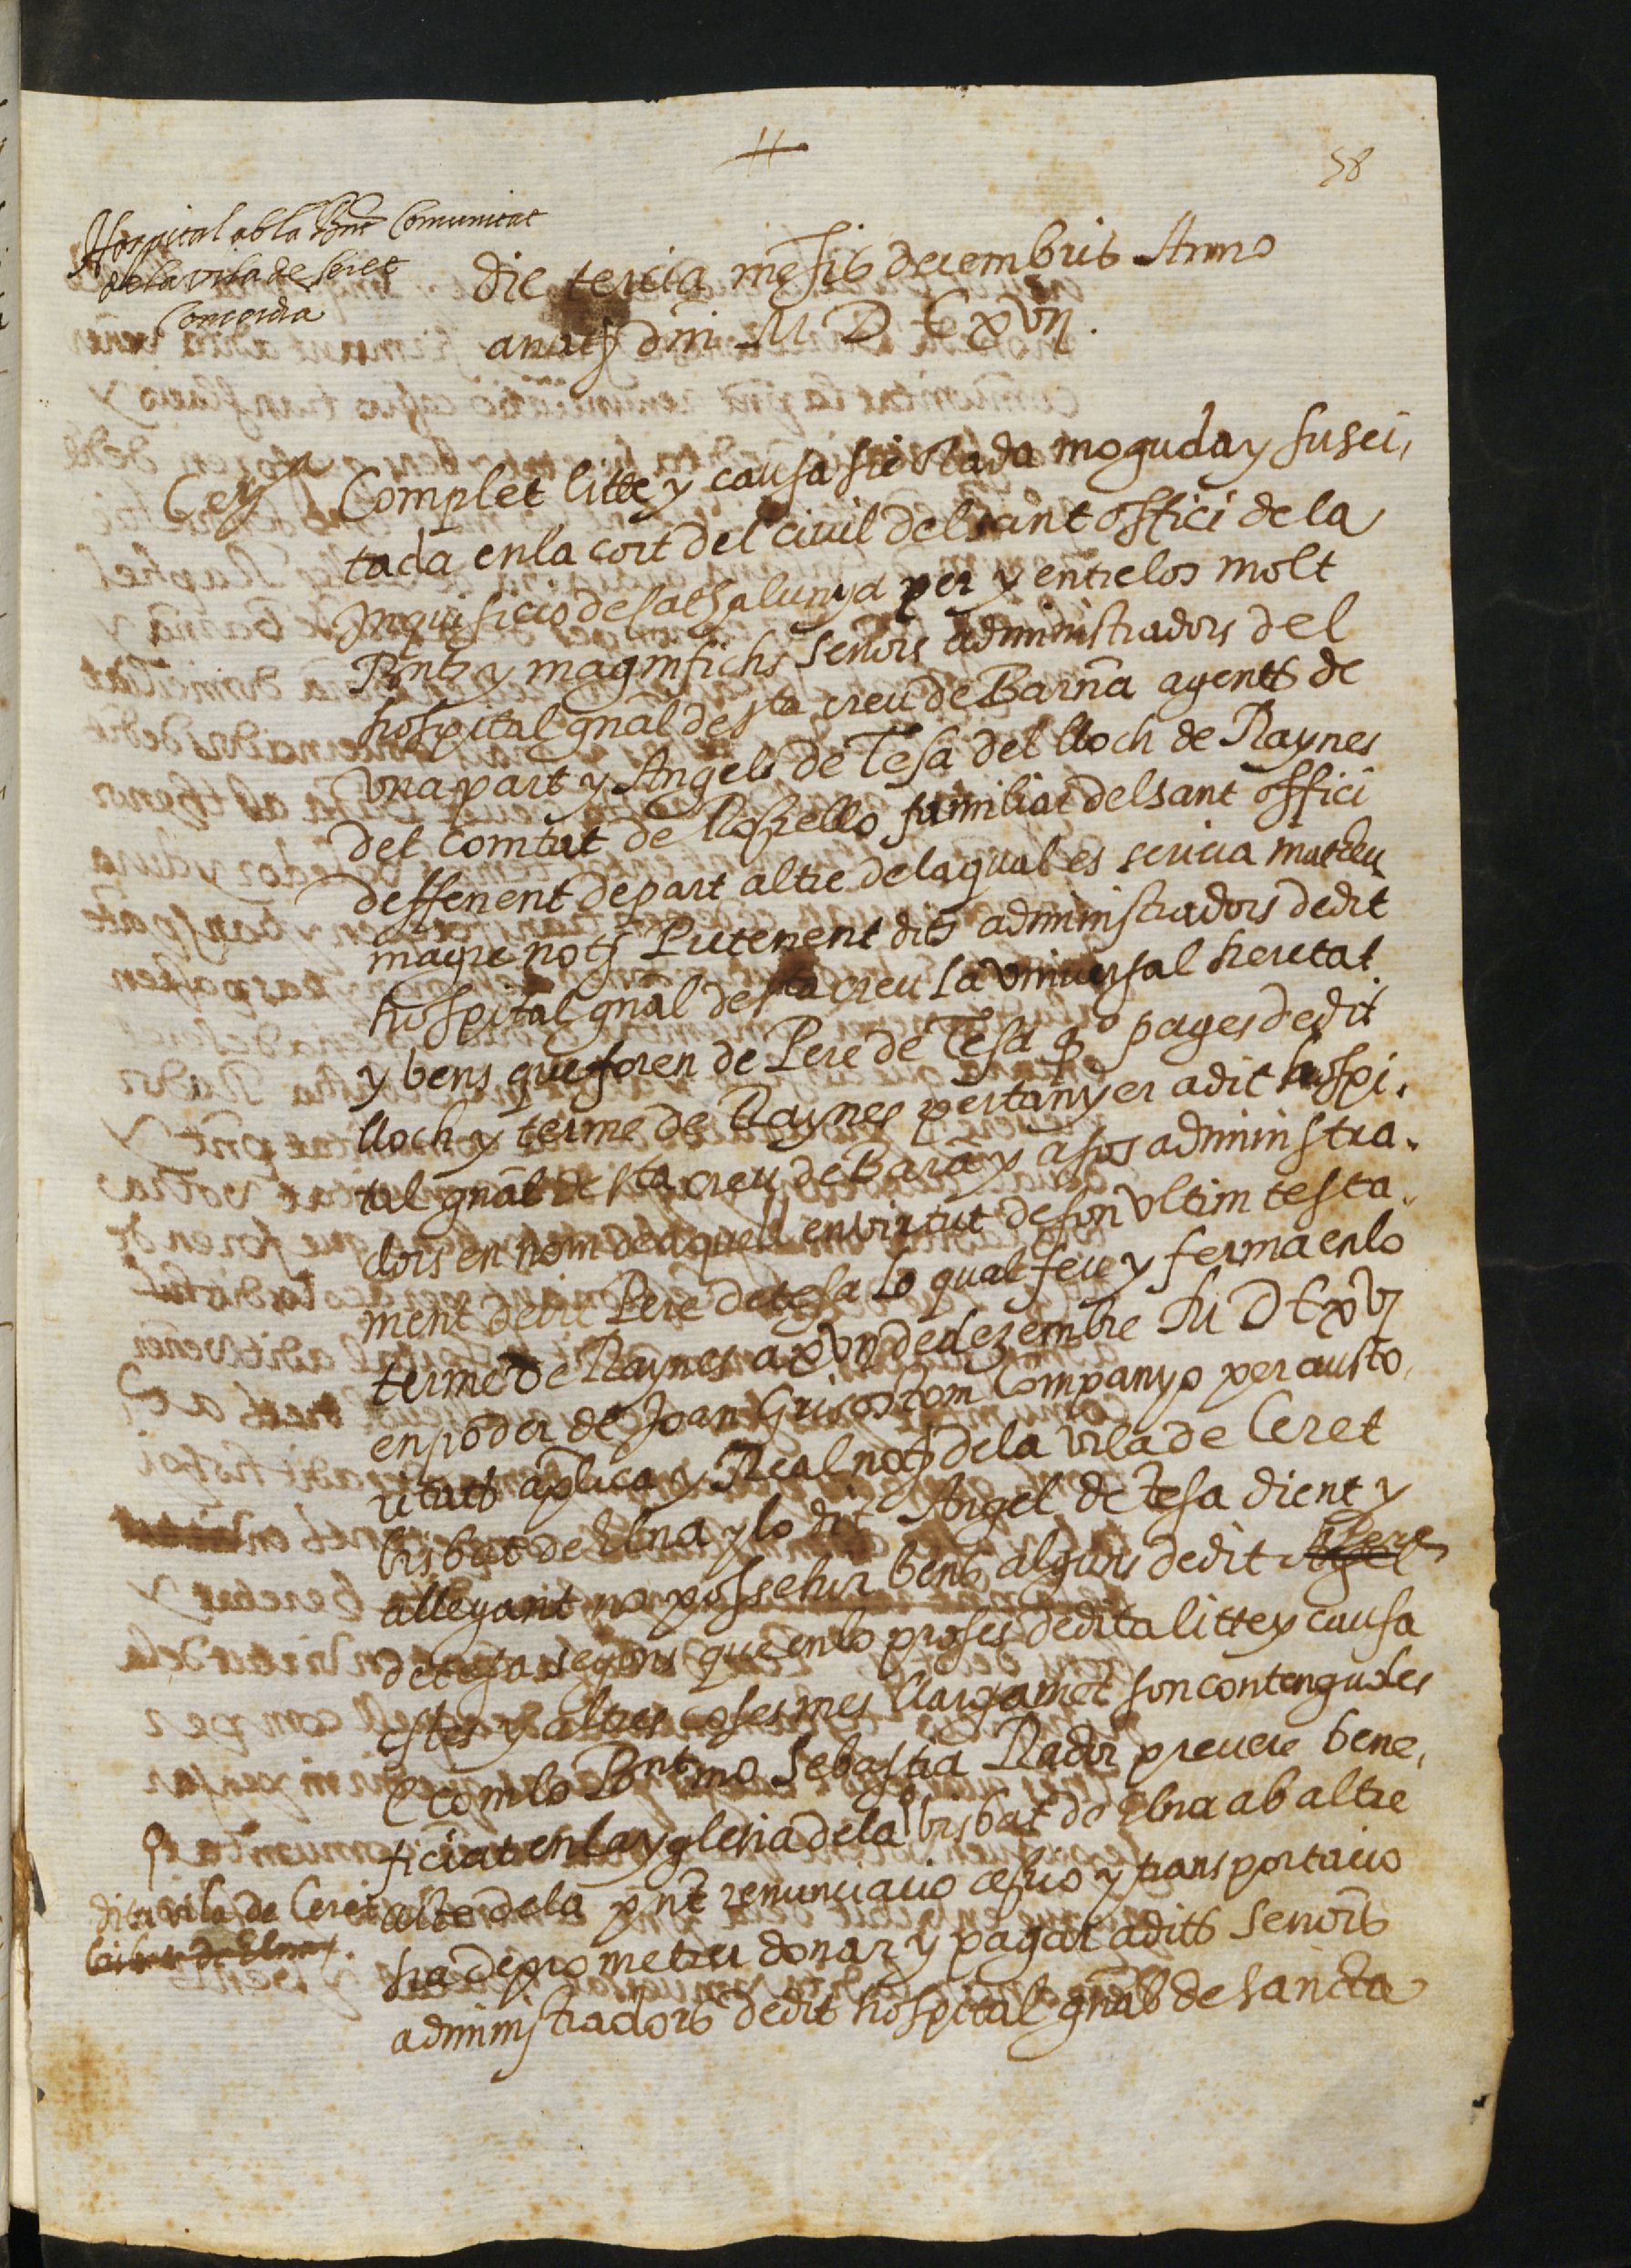 58
Hospital ab la Rnt Comunitat
de la vila de Ceret
Concordia
die tercia mesis decembris Anno
a natte dni M D C x vij.
Com plet litte y causa sie stada moguda y susci,
tada en la cort del ciuil del sant offici de la
Inquisicio de Cathalunya per y entre los molt
Rnts y magnifichs senors administradors del
hospital gnal de sta creu de Barna agents de
vna part y Angel de Tesa del lloch de Raynes
del comtat de Rossello familiar del sant offici
deffenent de part altre de la qual es scriua matheu
magre nott Pretenent dits administradors de dit
hospital gnal de sta creu la vniuersal heretat
y bens que foren de Pere de Tesa qº pages de dit
lloch y terme de Raynes pertanyer a dit hospi,
tal gnal de sta creu de Bara y a sos administra,
dors en nom de aquell en virtut de son vltim testa,
ment de dit Pere de tesa lo qual feu y ferma en lo
terme de Raynes a xvij de dezembre M D C xvj
en poder de Joan Grisostom Companyo per aucto,
ritats aplica y Real nott de la vila de Ceret
bisbat de Elna y lo dit Angel de Tesa dient y
allegant no possehir bens alguns de dit Angel Pere
de tesa segons que en lo proses de dita litte y causa
estes y altres coses mes llargamet son contengudes
E com lo Rnt mo Sebastia Rador preuere bene,
ficiat en la yglesia de la bisbat de Elna ab altre
dita vila de Ceret
bisbat de Elna
acte de la pnt renunciacio cessio y transportacio
ha de prometrer donar y pagar a dits senors
administradors de dit hospital gnal de sancta